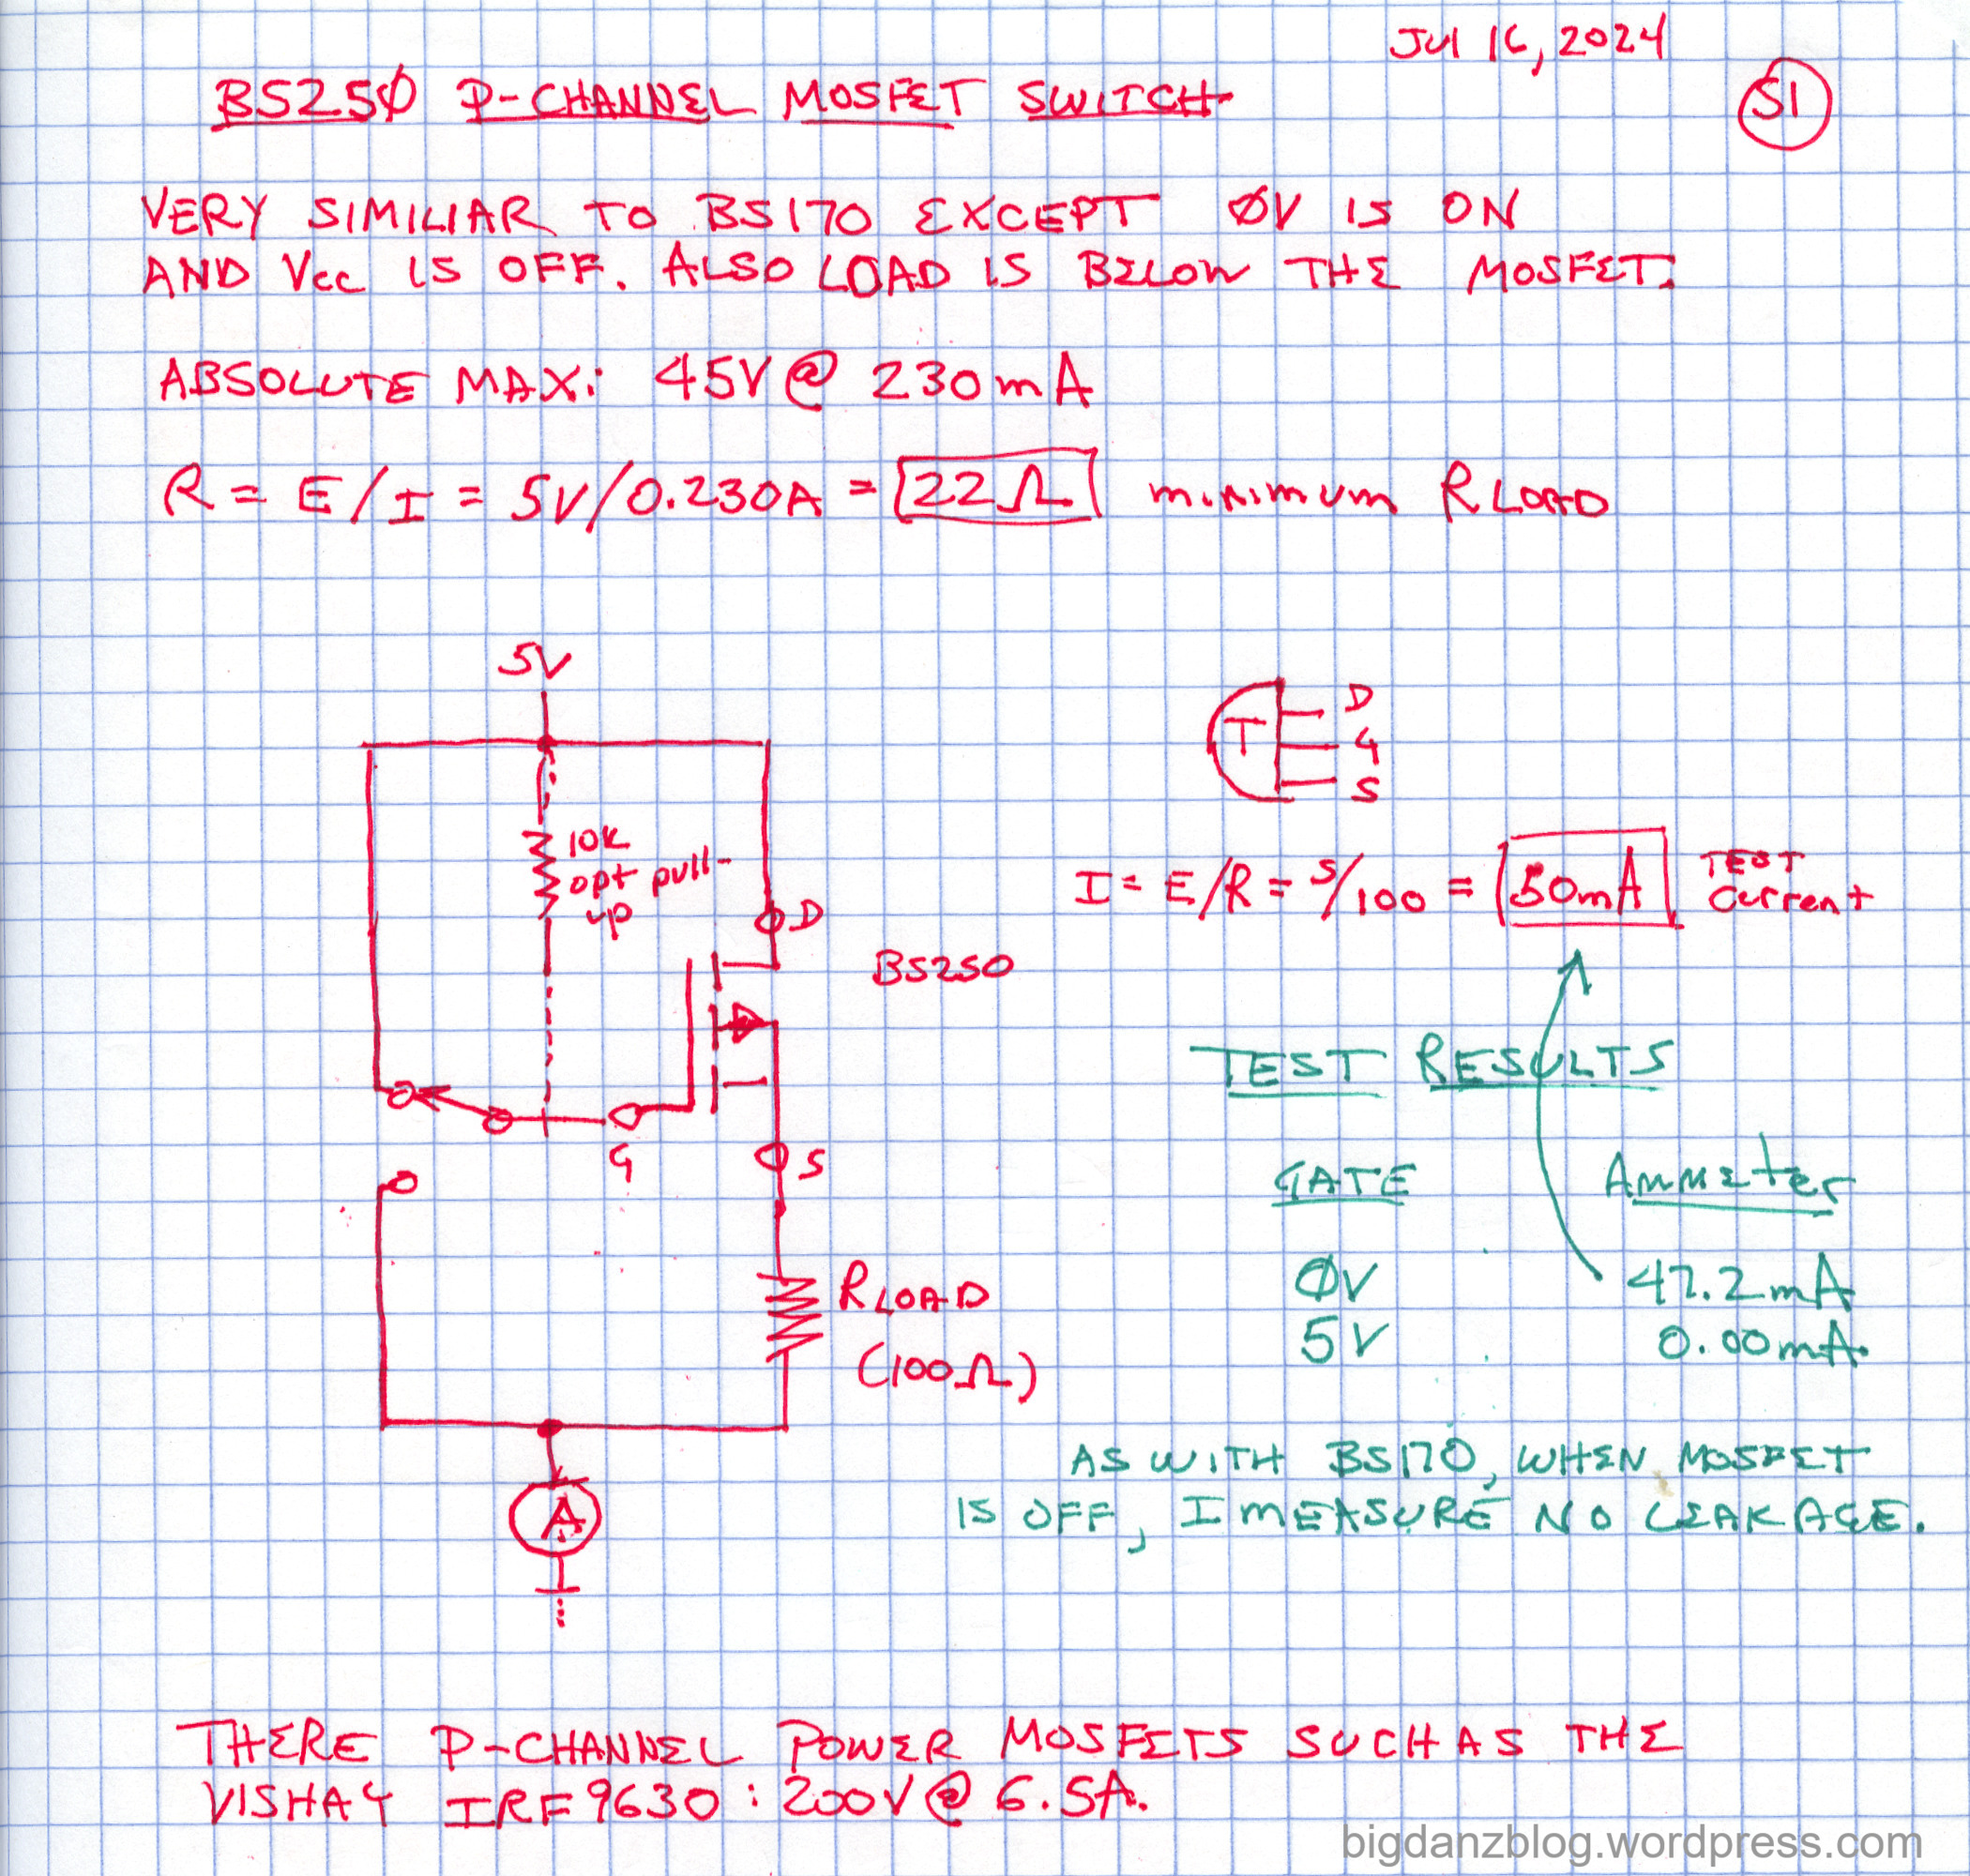 Jul 16, 2024
BS25Ø P-CHANNEL MOSFET SWITCH
51
VERY SIMILIAR TO BS170 EXCEPT ØV IS ON
AND Vcc IS OFF. ALSO LOAD IS BELOW THE MOSFET.
ABSOLUTE MAX: 45V @ 230mA
R = E/I = 5V/0.230A = 22Ω minimum RLOAD
5V
D
G
S
T
10K
opt pull-
up
D
I = E/R = 5/100 = 50mA TEST
Current
BS250
TEST RESULTS
G
S
GATE Ammeter
ØV 47.2mA
5V 0.00mA.
RLOAD
(100Ω)
AS WITH BS170, WHEN MOSFET
IS OFF, I MEASURE NO LEAKAGE.
A
THERE P-CHANNEL POWER MOSFETS SUCH AS THE
VISHAY IRF9630: 200V @ 6.5A.
bigdanzblog.wordpress.com